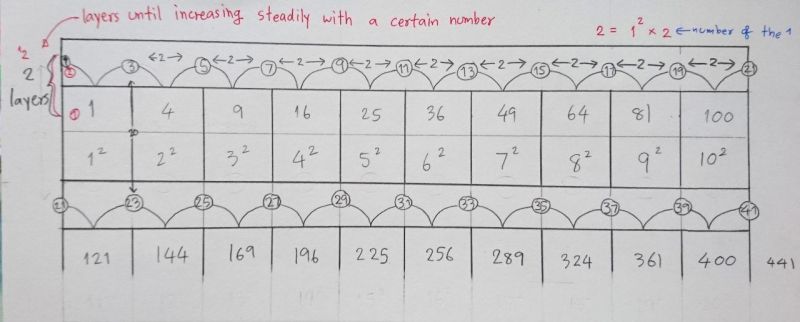 layers until increasing steadily with a certain number
2 = 1² × 2 ← number of the 1
2
2 layers
② ③ ←2→ ⑤ ←2→ ⑦ ←2→ ⑨ ←2→ ⑪ ←2→ ⑬ ←2→ ⑮ ←2→ ⑰ ←2→ ⑲ ←2→ ㉑
① 1 4 9 16 25 36 49 64 81 100
20
1² 2² 3² 4² 5² 6² 7² 8² 9² 10²
㉑ ㉓ ㉕ ㉗ ㉙ ㉛ ㉝ ㉟ ㊲ ㊴ ㊶
121 144 169 196 225 256 289 324 361 400 441